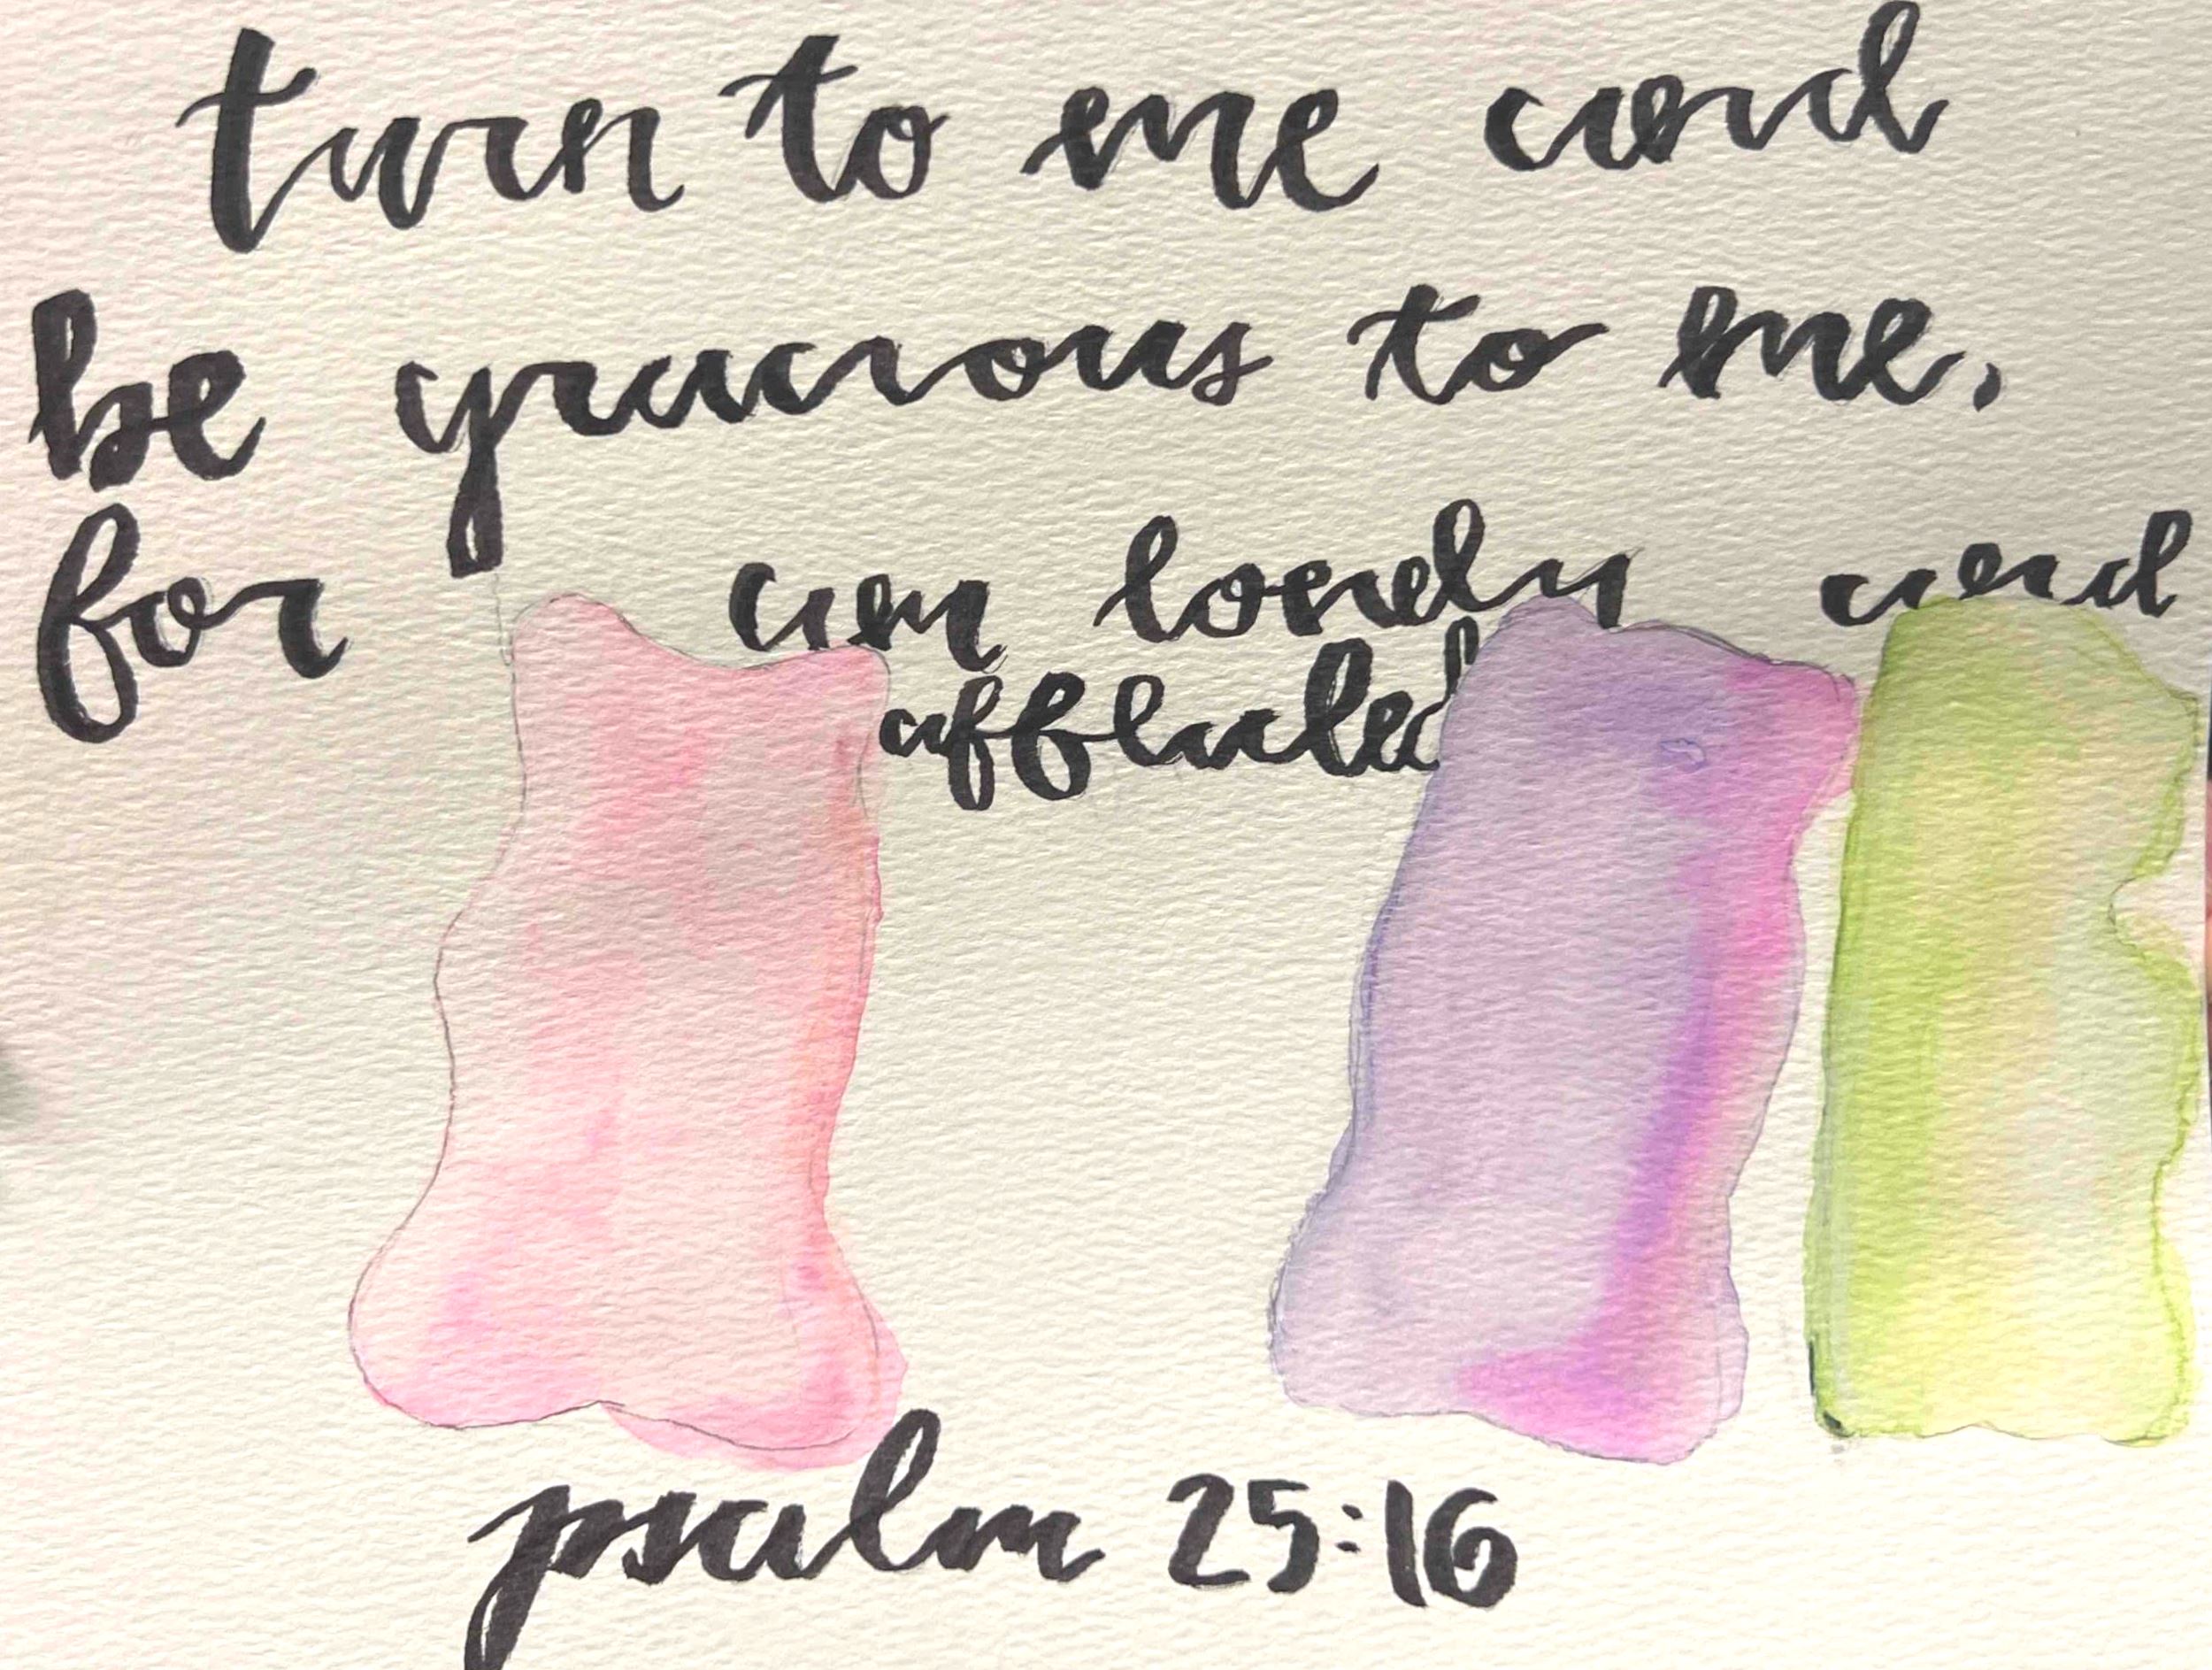 turn to me and
be gracious to me,
for am lonely and
afflicted
psalm 25:16